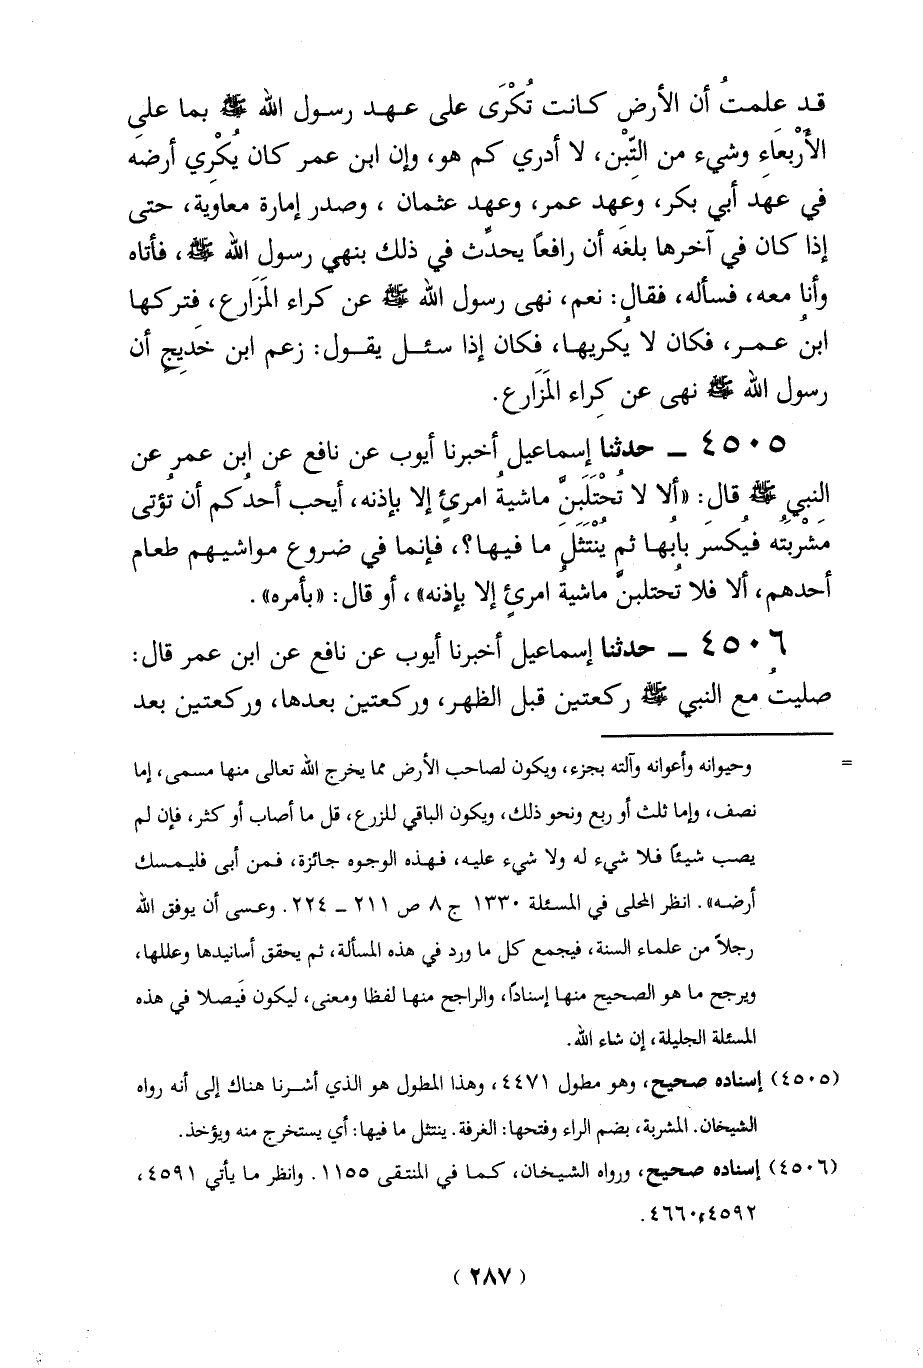 قد علمتُ أن الأرض كانت تُكْرَى على عهد رسول الله ﷺ بما على
الأَرْبعَاءِ وشيء من التِّبْن، لا أدري كم هو، وإن ابن عمر كان يُكْرِي أرضَه
في عهد أبي بكر، وعهد عمر، وعهد عثمان ، وصدر إمارة معاوية، حتى
إذا كان في آخرها بلغَه أن رافعاً يحدِّث في ذلك بنهي رسول الله ﷺ، فأتاه
وأنا معه، فسأله، فقال: نعم، نهى رسول الله ﷺ عن كراء المَزَارع، فتركها
ابنُ عمر، فكان لا يُكريها، فكان إذا سئل يقول: زعم ابن خَدِيجٍ أن
رسول الله ﷺ نهى عن كِراء المَزَارع.
٤٥٠٥ ــ حدثنا إسماعيل أخبرنا أيوب عن نافع عن ابن عمر عن
النبي ﷺ قال: «ألا لا تُحْتَلَبنَّ ماشيةُ امرئٍ إلا بإذنه، أيحب أحدُكم أن تُؤتى
مَشْرُبَتُه فيُكسَر بابُها ثم يُنْتَثَلَ ما فيها؟، فإنما في ضروع مواشيهم طعام
أحدهم، ألا فلا تُحتلبنَّ ماشيةُ امرئٍ إلا بإذنه» ، أو قال: «بأمره» .
٤٥٠٦ ــ حدثنا إسماعيل أخبرنا أيوب عن نافع عن ابن عمر قال:
صليتُ مع النبي ﷺ ركعتين قبل الظهر، وركعتين بعدها، وركعتين بعد
= وحيوانه وأعوانه وآلته بجزء، ويكون لصاحب الأرض مما يخرج الله تعالى منها مسمى، إما
نصف، وإما ثلث أو ربع ونحو ذلك، ويكون الباقي للزرع، قل ما أصاب أو كثر، فإن لم
يصب شيئاً فلا شيء له ولا شيء عليه، فهذه الوجوه جائزة، فمن أبى فليمسك
أرضه». انظر المحلى في المسئلة ١٣٣٠ ج ٨ ص ٢١١ ــ ٢٢٤. وعسى أن يوفق الله
رجلاً من علماء السنة، فيجمع كل ما ورد في هذه المسألة، ثم يحقق أسانيدها وعللها،
ويرجح ما هو الصحيح منها إسناداً، والراجح منها لفظا ومعنى، ليكون فَيصلا في هذه
المسئلة الجليلة، إن شاء الله.
(٤٥٠٥) إسناده صحيح، وهو مطول ٤٤٧١، وهذا المطول هو الذي أشرنا هناك إلى أنه رواه
الشيخان. المشربة، بضم الراء وفتحها: الغرفة. ينتثل ما فيها: أي يستخرج منه ويؤخذ.
(٤٥٠٦) إسناده صحيح، ورواه الشيخان، كما في المنتقى ١١٥٥. وانظر ما يأتي ٤٥٩١،
٤٥٩٢، ٤٦٦٠.
( ٢٨٧ )